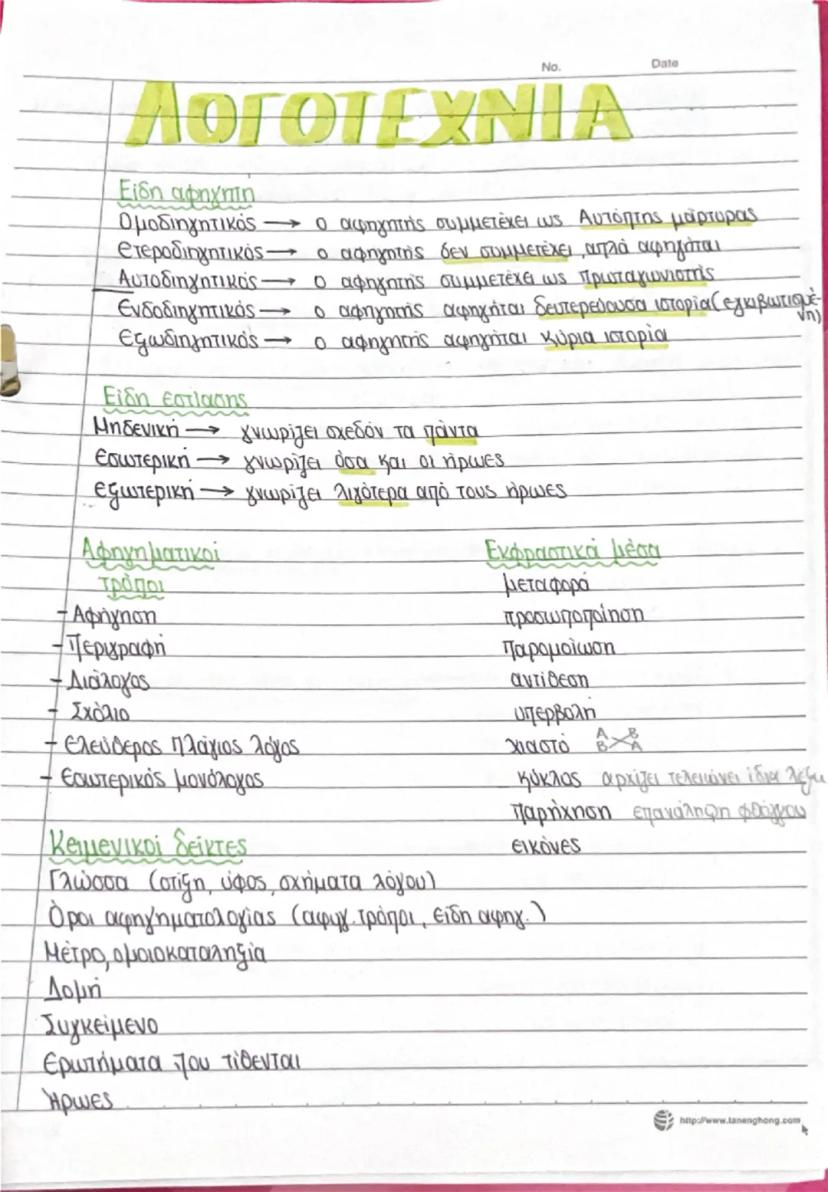 No. Date
ΛΟΓΟΤΕΧΝΙΑ
Είδη αφηγητή
Ομοδιηγητικός → ο αφηγητής συμμετέχει ως Αυτόπτης μάρτυρας
Ετεροδιηγητικός → ο αφηγητής δεν συμμετέχει, απλά αφηγάται
Αυτοδιηγητικός → ο αφηγητής συμμετέχει ως πρωταγωνιστής
Ενδοδιηγητικός → ο αφηγητής αφηγάται δευτερεύουσα ιστορία (εγκιβωτισμέ-
νη)
Εξωδιηγητικός → ο αφηγητής αφηγάται κύρια ιστορία
Είδη εστίασης
Μηδενική → γνωρίζει σχεδόν τα πάντα
Εσωτερική → γνωρίζει όσα και οι ήρωες
Εξωτερική → γνωρίζει λιγότερα από τους ήρωες
Αφηγηματικοί
τρόποι
- Αφήγηση
- Περιγραφή
- Διάλογος
- Σχόλιο
- Ελεύθερος πλάγιος λόγος
- Εσωτερικός μονόλογος
Εκφραστικά μέσα
μεταφορά
προσωποποίηση
παρομοίωση
αντίθεση
υπερβολή
χιαστό Α Β
Β Α
κύκλος αρχίζει τελειώνει ίδια λέξη
παρήχηση επανάληψη φθόγγου
εικόνες
Κειμενικοί δείκτες
Γλώσσα (στίξη, ύφος, σχήματα λόγου)
Όροι αφηγηματολογίας (αφηγ. τρόποι, είδη αφηγ.)
Μέτρο, ομοιοκαταληξία
Δομή
Συγκείμενο
Ερωτήματα που τίθενται
Ήρωες
http://www.lanenghong.com